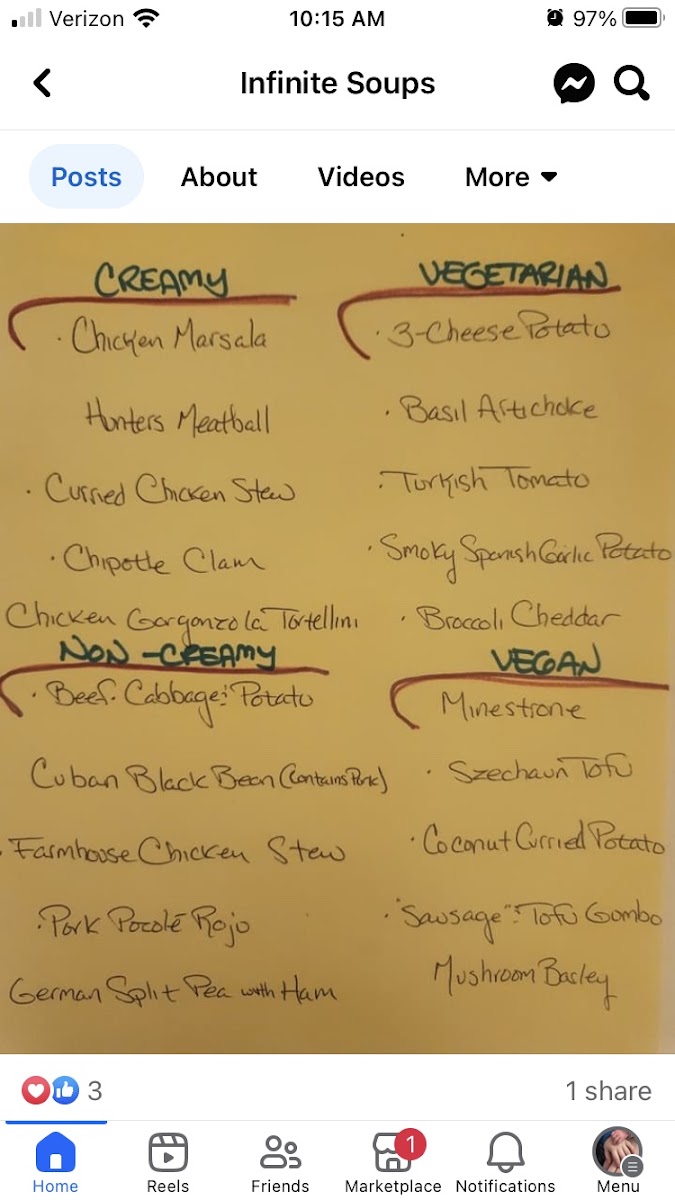 Verizon 10:15 AM 97%
Infinite Soups
Posts About Videos More
CREAMY
· Chicken Marsala
Hunters Meatball
· Curried Chicken Stew
· Chipotle Clam
Chicken Gorgonzola Tortellini
NON-CREAMY
· Beef. Cabbage & Potato
Cuban Black Bean (Contains Pork)
· Farmhouse Chicken Stew
· Pork Pocolé Rojo
German Split Pea with Ham
VEGETARIAN
· 3-Cheese Potato
· Basil Artichoke
· Turkish Tomato
· Smoky Spanish Garlic Potato
· Broccoli Cheddar
VEGAN
Minestrone
· Szechaun Tofu
· Coconut Curried Potato
· "Sausage" & Tofu Gumbo
Mushroom Barley
3 1 share
1
Home Reels Friends Marketplace Notifications Menu